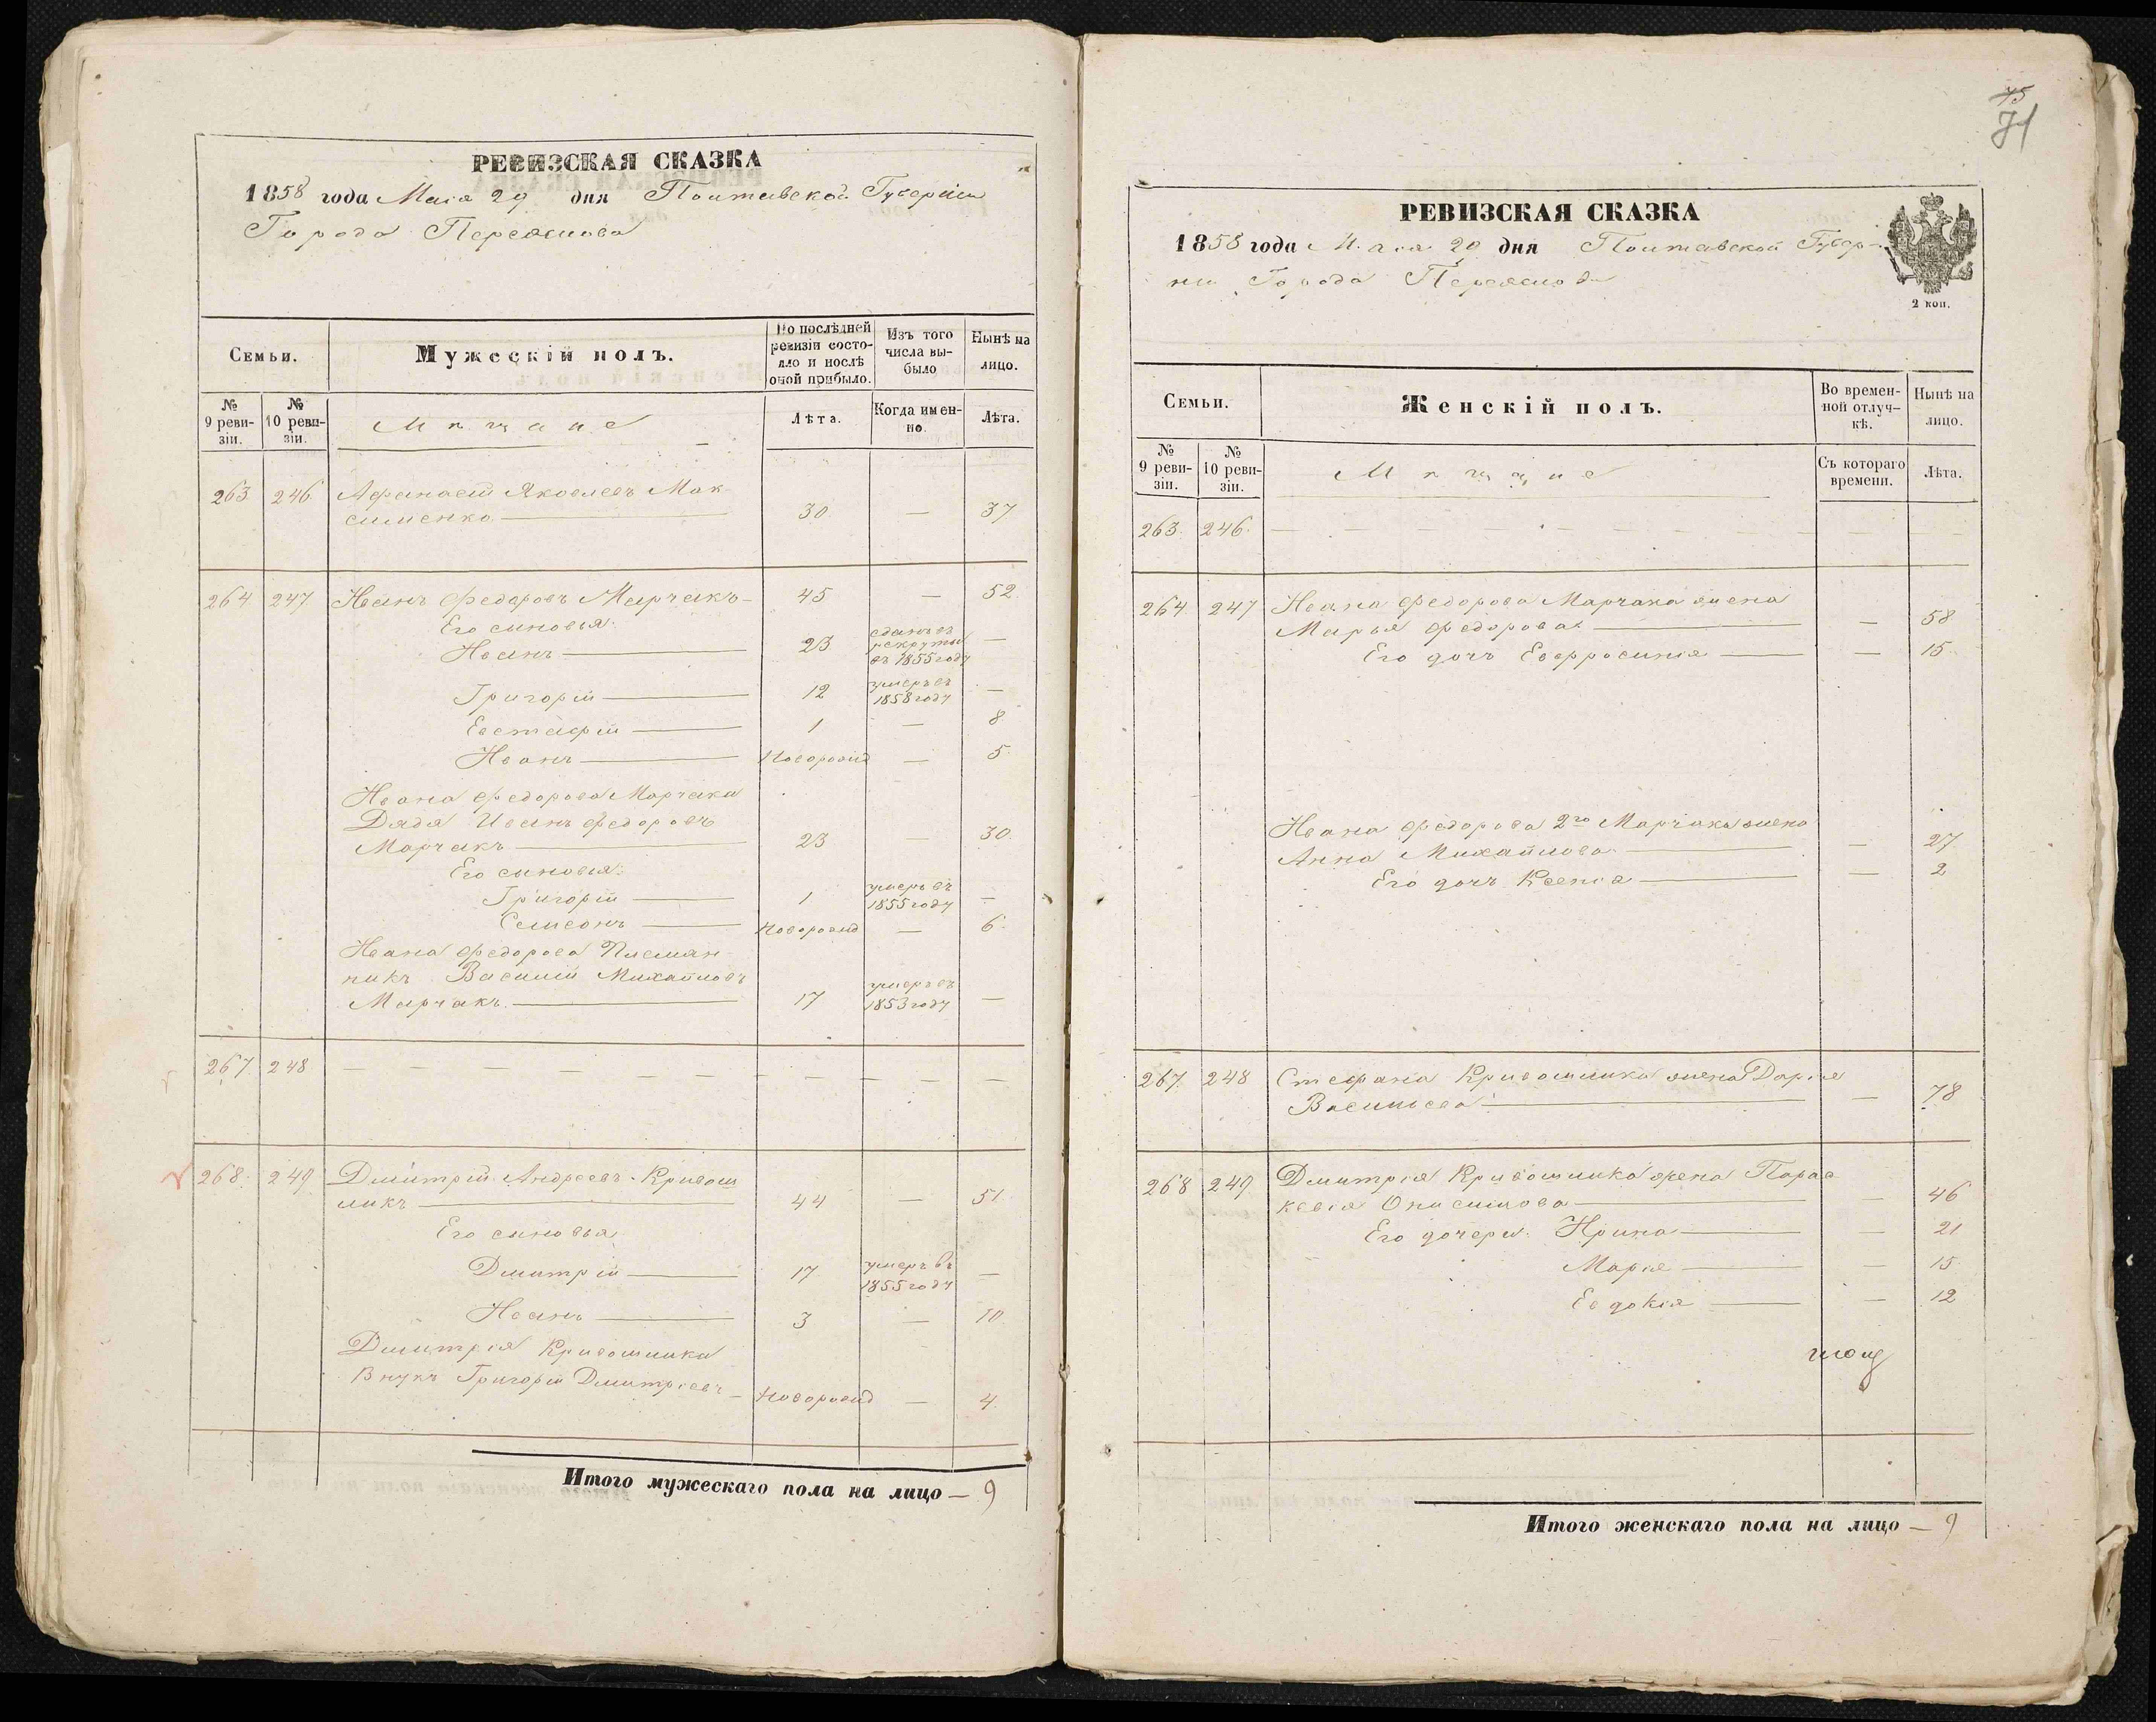 РЕВИЗСКАЯ СКАЗКА
1858 года Маія 29 дня Полтавской Губерніи
Города Переяслова
Семьи.
Мужескій полъ.
По послѣдней ревизіи состояло и послѣ оной прибыло.
Изъ того числа выбыло
Нынѣ на лицо.
№ 9 ревизіи.
№ 10 ревизіи.
Мѣщане
Лѣта.
Когда именно.
Лѣта.
263 246 Афанасій Яковлевъ Мак-
сименко 30 — 37
264 247 Иванъ Федоровъ Марчакъ 45 — 52
Его сыновья:
Иванъ 23 сданъ въ рекруты въ 1855 году —
Григорій 12 умеръ въ 1858 году —
Евстафій 1 — 8
Иванъ Новорожд — 5
Ивана Федорова Марчака
Дядя Иванъ Федоровъ
Марчакъ 23 — 30
Его сыновья:
Григорій 1 умеръ въ 1855 году —
Симеонъ Новорожд — 6
Ивана Федорова Племян-
никъ Василій Михайловъ
Марчакъ 17 умеръ въ 1853 году —
267 248 — — — — — — — — — — —
268 249 Дмитрій Андреевъ Кривош
ликъ 44 — 51
Его сыновья
Дмитрій 17 умеръ въ 1855 году —
Иванъ 3 — 10
Дмитрія Кривошлика
Внукъ Григорій Дмитріевъ — Новорожд — 4
Итого мужескаго пола на лицо — 9
75
71
РЕВИЗСКАЯ СКАЗКА
1858 года Маія 29 дня Полтавской Губер-
ніи Города Переяслова
2 коп.
Семьи.
Женскій полъ.
Во временной отлучкѣ.
Нынѣ на лицо.
№ 9 ревизіи.
№ 10 ревизіи.
Мѣщане
Съ котораго времени.
Лѣта.
263 246 — — — — — — — — —
264 247 Ивана Федорова Марчака жена
Марья Федорова — 58
Его дочь Евфросинія — 15
Ивана Федорова 2го Марчака жена
Анна Михайлова — 27
Его дочь Ксенія — 2
267 248 Стефана Кривошлика жена Дарія
Васильева — 78
268 249 Дмитрія Кривошлика жена Парас
кевія Онисимова — 46
Его дочери: Ирина — 21
Марія — 15
Евдокія — 12
Итого женскаго пола на лицо — 9